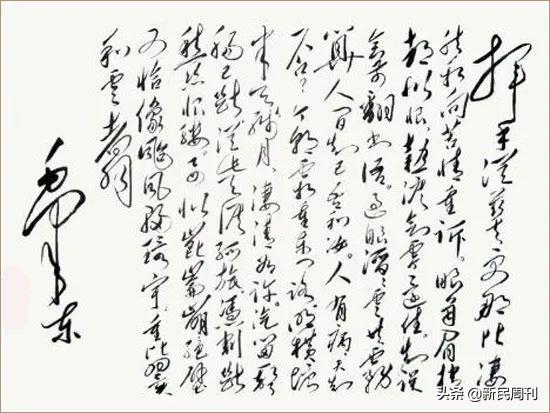 挥手从兹去更那比凄
然相向苦情重诉。眼角眉梢
都似恨,热泪欲零还住。知误
会前翻书语。过眼滔滔云共雾
算人间知己吾和汝。人有病,天知
否?今朝霜重东门路,照横塘
半天残月,凄清如许。汽笛一声
肠已断,从此天涯孤旅。凭割断
愁丝恨缕。要似昆仑崩绝壁
又恰像飓风扫寰宇。重比翼
和云翥
毛泽东
头条 @新民周刊